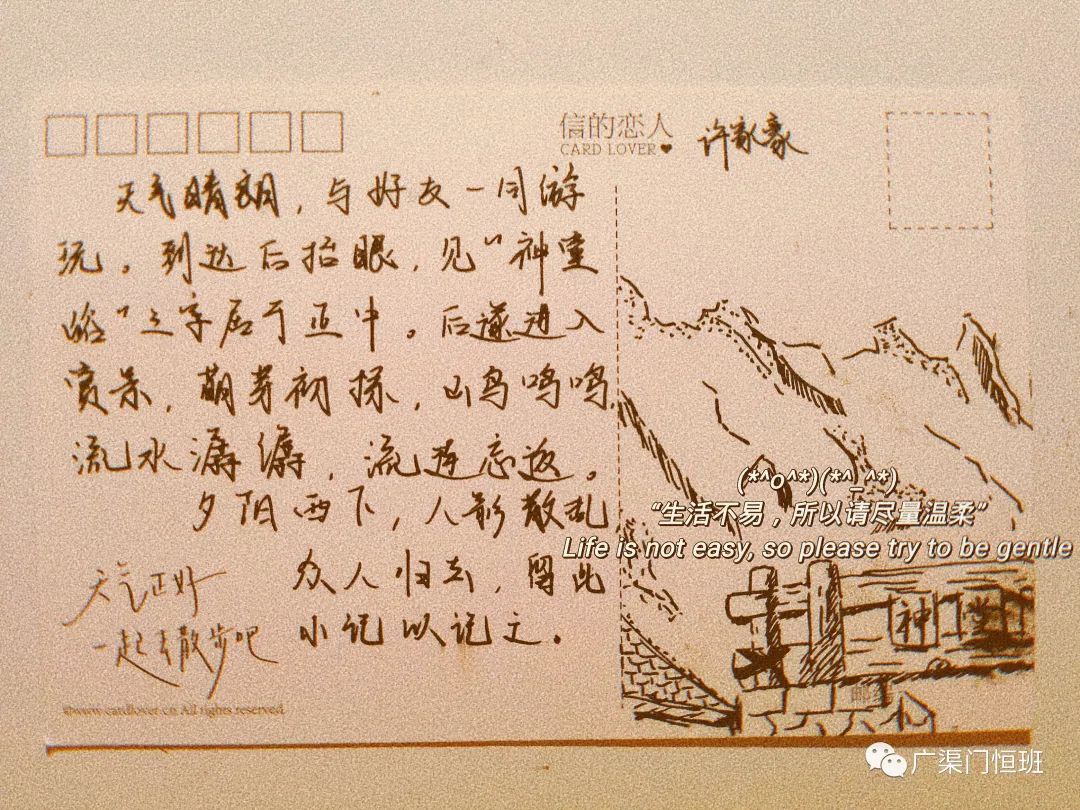 信的恋人
CARD LOVER
许家豪
天气晴朗，与好友一同游
玩。到达后抬眼，见“神堂
峪”三字居于正中。后遂进入
赏景，萌芽初探，山鸟鸣鸣，
流水潺潺，流连忘返。
夕阳西下，人影散乱，
众人归去，留此
小记以记之。
天气正好
一起去散步吧
©www.cardlover.cn All rights reserved.
(*^o^*)(*^_^*)
“生活不易，所以请尽量温柔”
Life is not easy, so please try to be gentle
神堂
广渠门恒班